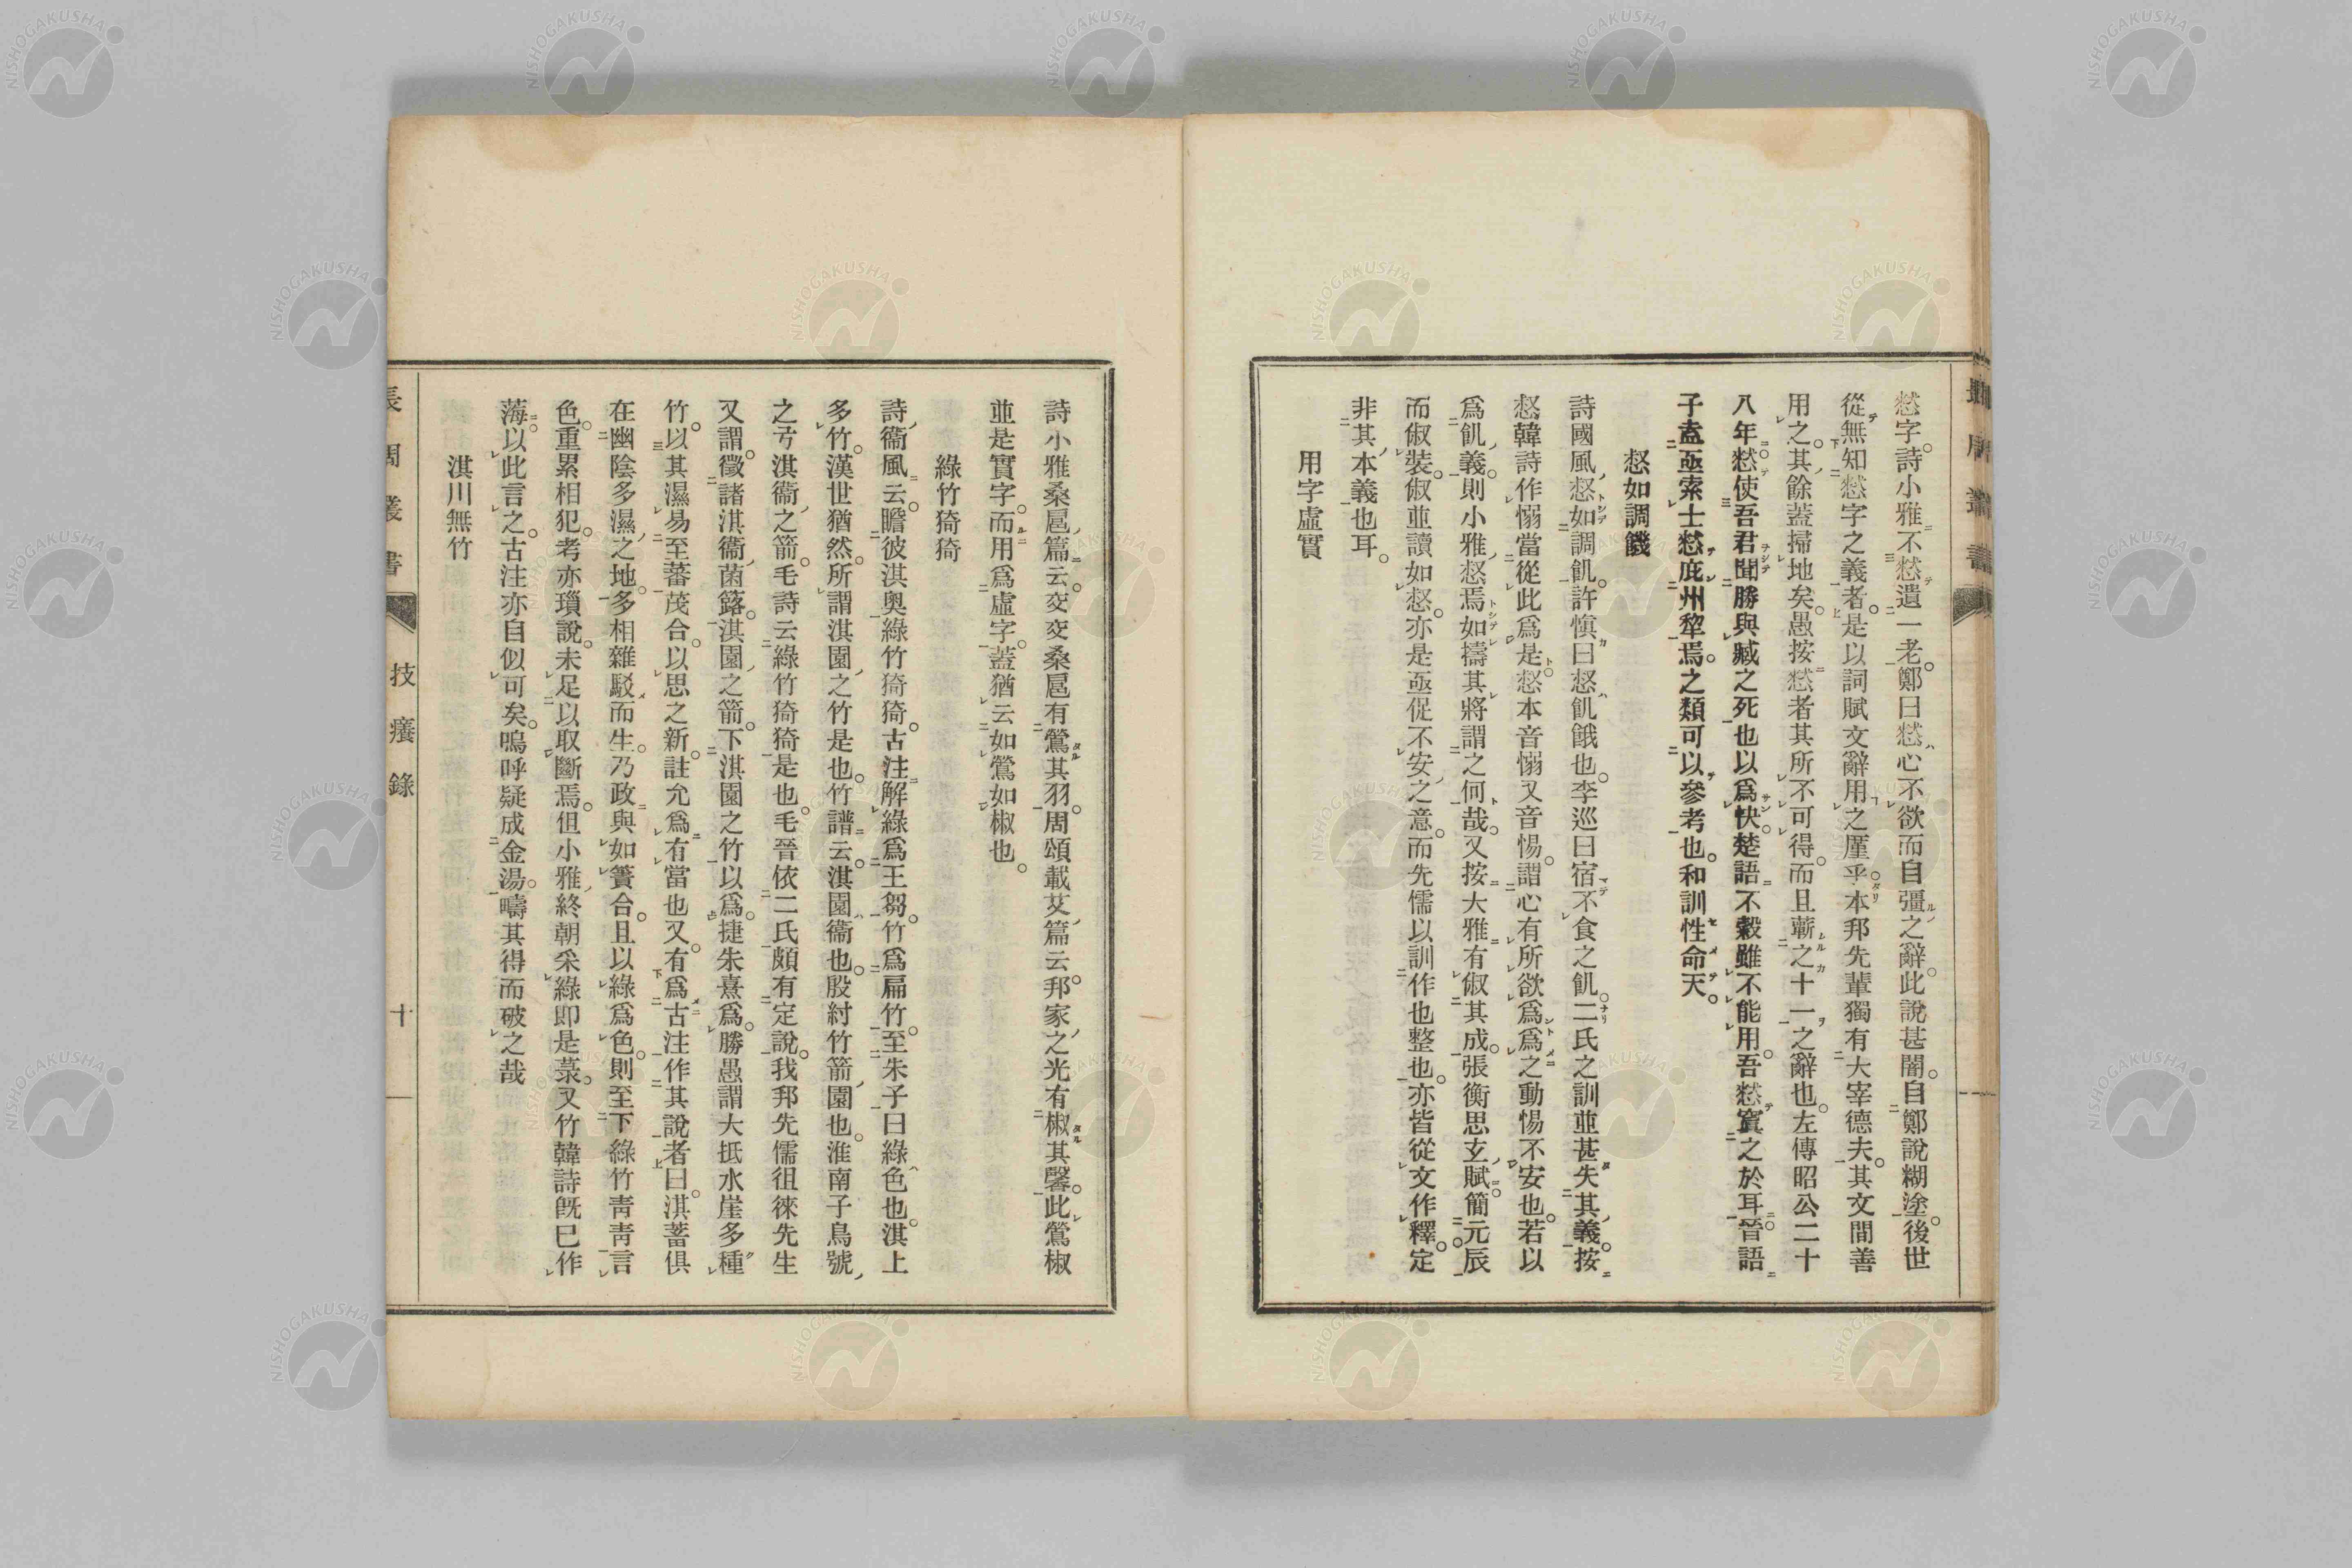 憖字。詩小雅不憖遺一老。鄭曰憖心不欲而自彊之辭。此說甚闇。自鄭說糊塗。後世
從無知憖字之義者。是以詞賦文辭用之厪乎。本邦先輩獨有大宰德夫。其文間善
用之。其餘蓋掃地矣。愚按憖者其所不可得。而且蘄之十一之辭也。左傳昭公二十
八年。憖使吾君聞勝與臧之死也以爲快。楚語不穀雖不能用。吾憖寘之於耳。晉語
子盍亟索士憖庇州犂焉。之類可以參考也。和訓性命天。
惄如調饑
詩國風惄如調飢。許愼曰惄飢餓也。李巡曰宿不食之飢。二氏之訓並甚失其義。按
惄韓詩作愵當從此爲是。惄本音愵又音惕。謂心有所欲爲爲之動惕不安也。若以
爲飢義。則小雅惄焉如擣其將謂之何哉。又按大雅有俶其成。張衡思玄賦簡元辰
而俶裝。俶並讀如惄。亦是亟促不安之意。而先儒以訓作也整也。亦皆從文作釋。定
非其本義也耳。
用字虛實
詩小雅桑扈篇云。交交桑扈有鶯其羽。周頌載芟篇云。邦家之光有椒其馨。此鶯椒
並是實字。而用爲虛字。蓋猶云如鶯如椒也。
綠竹猗猗
詩衞風云。瞻彼淇奧綠竹猗猗。古注解綠爲王芻。竹爲扁竹。至朱子曰綠色也。淇上
多竹。漢世猶然。所謂淇園之竹是也。竹譜云。淇園衞也。殷紂竹箭園也。淮南子烏號
之弓淇衞之箭。毛詩云綠竹猗猗是也。毛晉依二氏頗有定說。我邦先儒徂徠先生
又謂。徵諸淇衞菌簬。淇園之箭。下淇園之竹以爲。捷朱熹爲。勝愚謂大抵水崖多種
竹。以其濕易至蕃茂合。以思之新。註允爲有當也又。有爲古注作其說者曰。淇蓄俱
在幽陰多濕之地。多相雜駁而生。乃政與如簀合。且以綠爲色。則至下綠竹靑靑言
色。重累相犯。考亦瑣說。未足以取斷焉。但小雅終朝采綠即是菉。又竹韓詩旣巳作
薄。以此言之。古注亦自似可矣。嗚呼疑成金湯。疇其得而破之哉
淇川無竹
技癢錄
十一